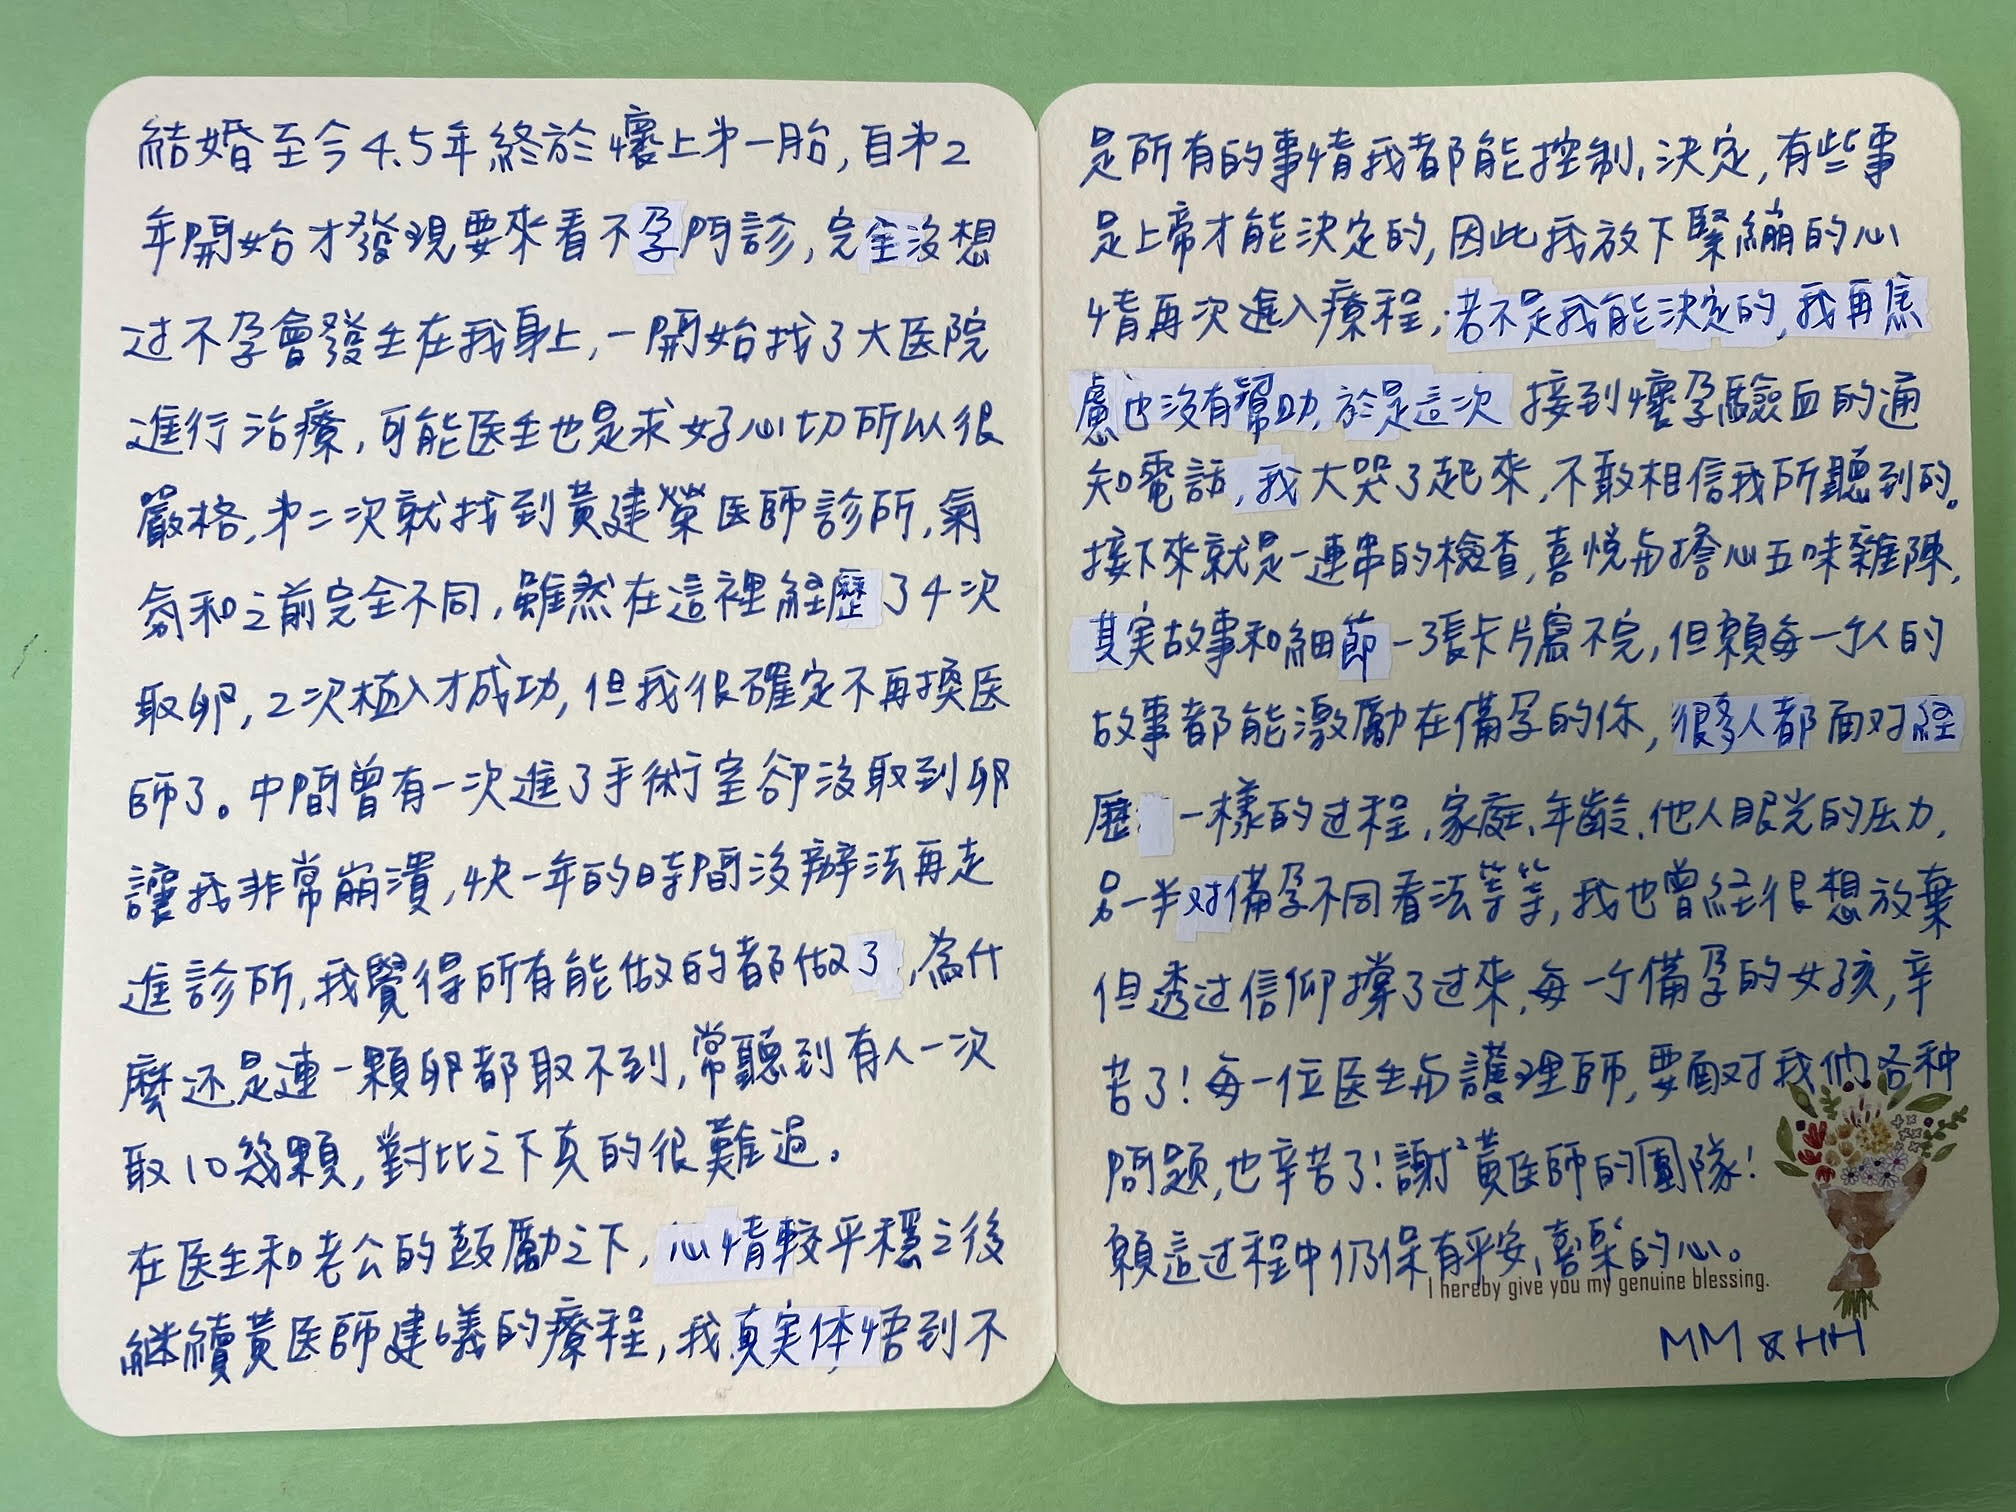 結婚至今4.5年終於懷上第一胎,自第2
年開始才發現要來看不孕門診,完全沒想
过不孕會發生在我身上,一開始找了大医院
進行治療,可能医生也是求好心切所以很
嚴格,第二次就找到黃建榮医師診所,氣
氛和之前完全不同,雖然在這裡経歷了4次
取卵,2次植入才成功,但我很確定不再換医
師了。中間曾有一次進了手術室卻沒取到卵
讓我非常崩潰,快一年的時間沒辦法再走
進診所,我覺得所有能做的都做了,為什
麼还是連一顆卵都取不到,常聽到有人一次
取10幾顆,對比之下真的很難過。
在医生和老公的鼓勵之下,心情較平穩之後
継續黃医師建議的療程,我真実体悟到不
是所有的事情我都能控制、決定,有些事
是上帝才能決定的,因此我放下緊繃的心
情再次進入療程,若不是我能決定的,我再焦
慮也沒有幫助,於是這次接到懷孕驗血的通
知電話,我大哭了起來,不敢相信我所聽到的。
接下來就是一連串的檢查,喜悅与擔心五味雜陳,
其実故事和細節一張卡片寫不完,但願每一个人的
故事都能激勵在備孕的你,很多人都面对経
歷一樣的过程,家庭、年齡、他人眼光的压力,
另一半对備孕不同看法等等,我也曾経很想放棄
但透过信仰撐了过來,每一个備孕的女孩,辛
苦了!每一位医生与護理師,要面对我們各种
問题,也辛苦了!謝²黃医師的團隊!
願這过程中仍保有平安、喜樂的心。
I hereby give you my genuine blessing.
MM & HH